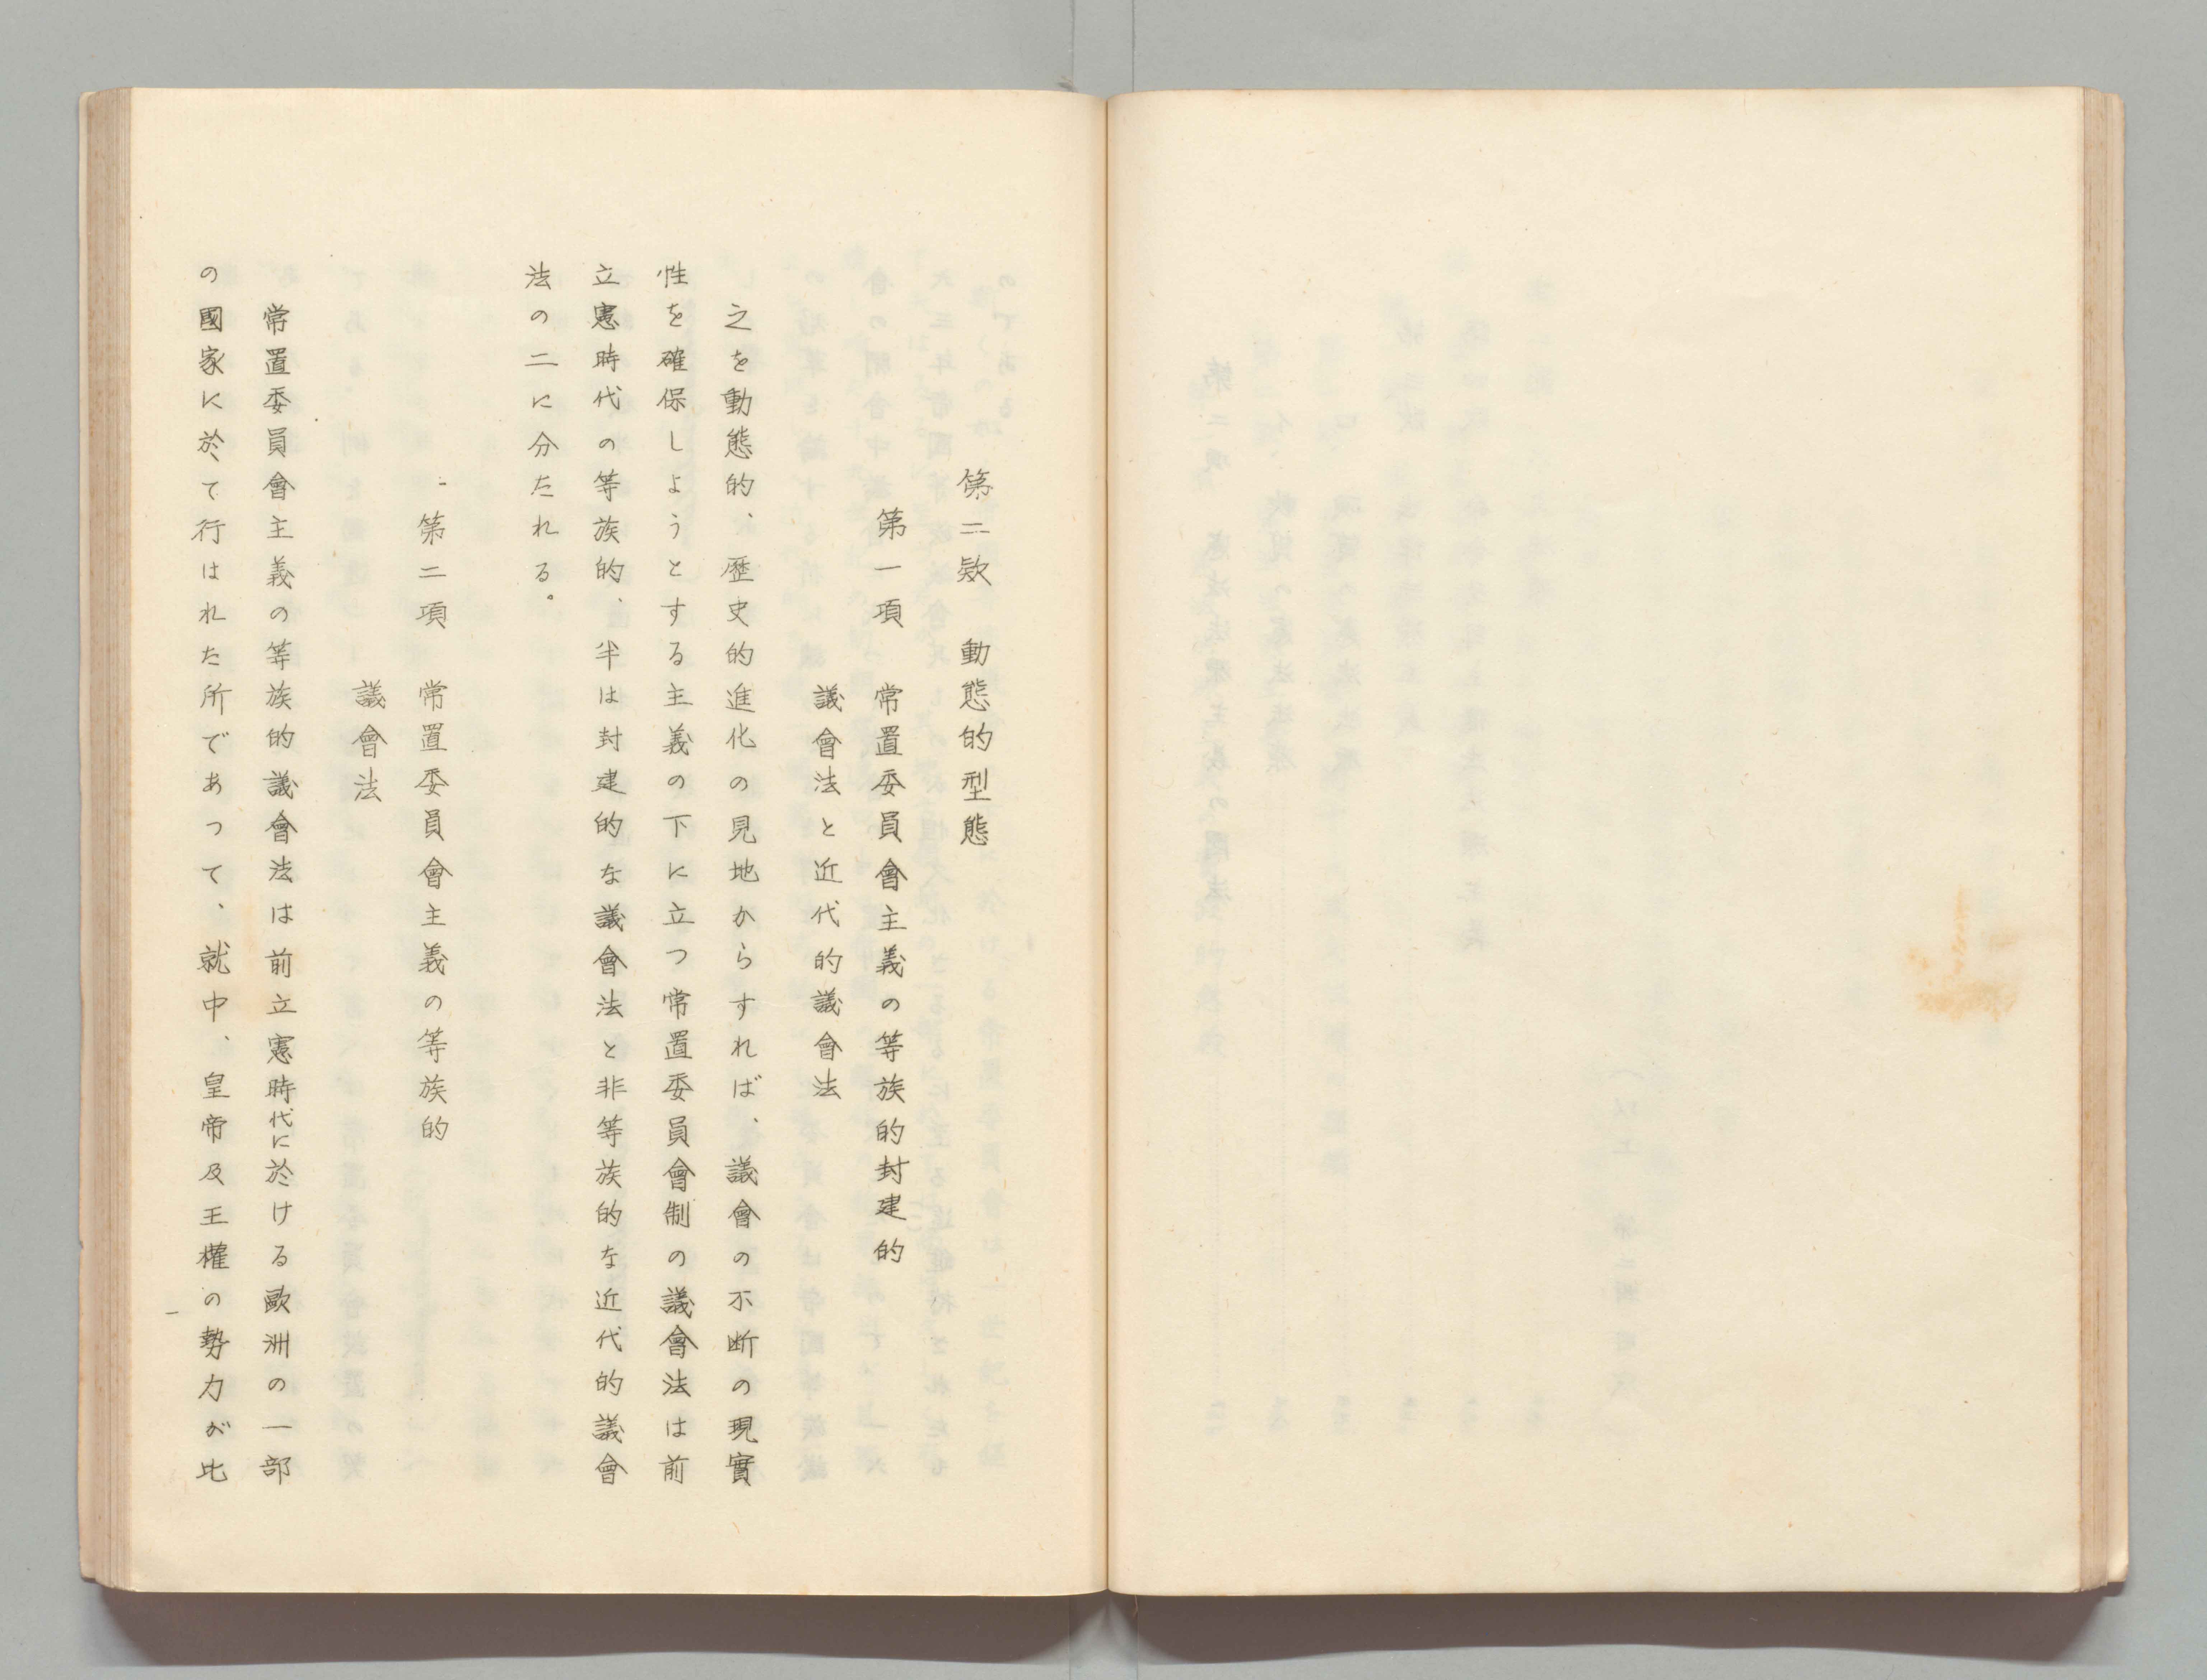 第二欵　動態的型態
第一項　常置委員會主義の等族的封建的
議會法と近代的議會法
之を動態的、歴史的進化の見地からすれば、議會の不断の現實
性を確保しようとする主義の下に立つ常置委員會制の議會法は前
立憲時代の等族的、半は封建的な議會法と非等族的な近代的議會
法の二に分たれる。
第二項　常置委員會主義の等族的
議會法
常置委員會主義の等族的議會法は前立憲時代に於ける歐洲の一部
の國家に於て行はれた所であつて、就中、皇帝及王權の勢力が比
一